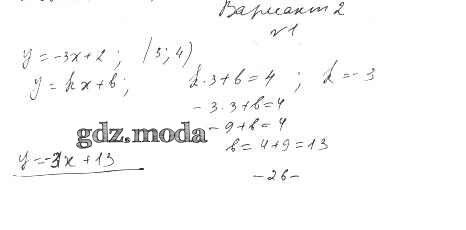 Вариант 2
№1
y = -3x + 2 ; (3; 4)
y = kx + b ; k·3 + b = 4 ; k = -3
-3·3 + b = 4
-9 + b = 4
gdz.moda
b = 4 + 9 = 13
y = -3x + 13
-26-